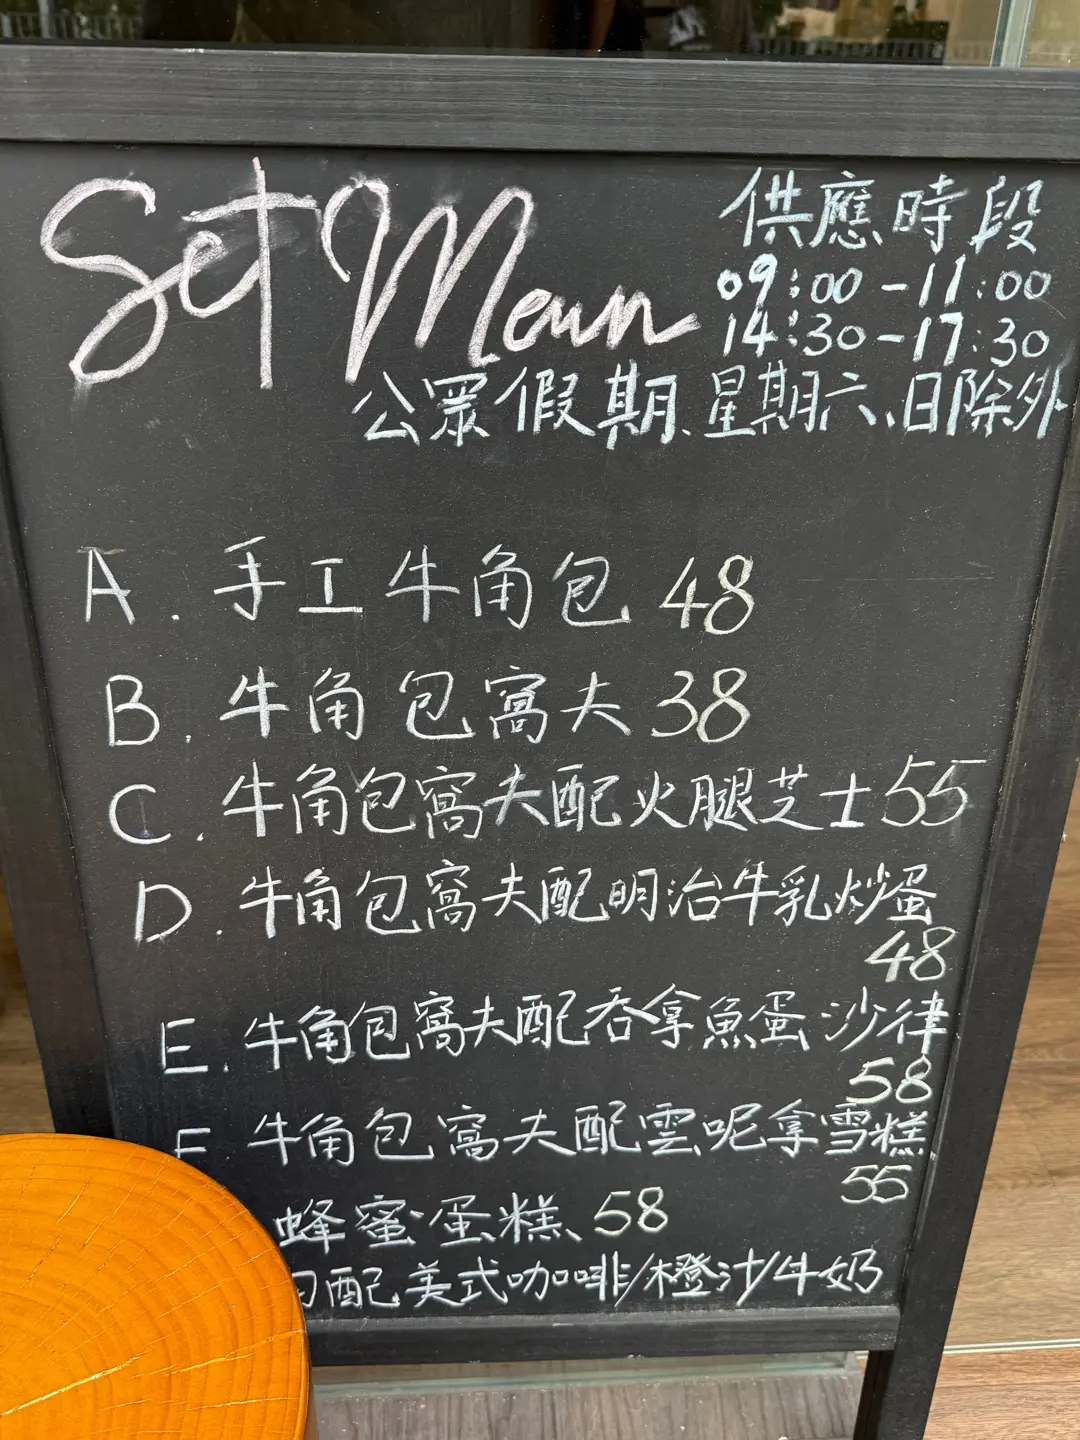 Set Meun
供應時段
09:00-11:00
14:30-17:30
公眾假期、星期六、日除外
A. 手工牛角包 48
B. 牛角包窩夫 38
C. 牛角包窩夫配火腿芝士 55
D. 牛角包窩夫配明治牛乳炒蛋
48
E. 牛角包窩夫配吞拿魚蛋沙律
58
F 牛角包窩夫配雲呢拿雪糕
55
蜂蜜蛋糕、58
配美式咖啡/橙汁/牛奶